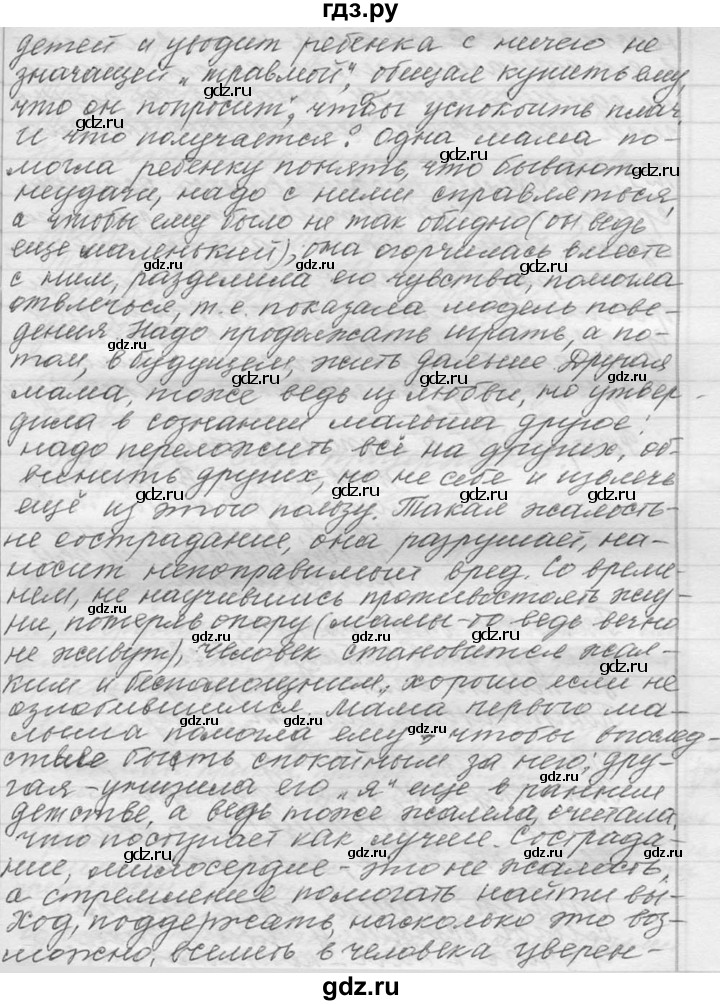 гдз.ру
детей и уводит ребенка с ничего не
значащей „травмой", обещая купить ему,
что он попросит", чтобы успокоить плач.
И что получается? Одна мама по-
могла ребенку понять, что бывают
неудачи, надо с ними справляться,
а чтобы ему было не так обидно (он ведь
еще маленький), она огорчилась вместе
с ним, разделила его чувства, помогла
отвлечься, т.е. показала модель пове-
дения. Надо продолжать играть, а по-
том, в будущем, жить дальше. Другая
мама, тоже ведь из любви, но утвер-
дила в сознании малыша другое:
надо переложить всё на других, об-
винить других, но не себе и извлечь
ещё из этого пользу. Такая жалость-
не сострадание, она разрушает, на-
носит непоправимый вред. Со време-
нем, не научившись противостоять жиз-
ни, потеряв опору (мамы-то ведь вечно
не живут), человек становится жал-
ким и беспомощным, хорошо если не
озлобившимся. Мама первого ма-
лыша помогла ему, чтобы впослед-
ствие быть спокойным за него; дру-
гая-унизила его „я" еще в раннем
детстве, а ведь тоже жалела, считала,
что поступает как лучше. Сострада-
ние, милосердие - это не жалость,
а стремление помогать найти вы-
ход, поддержать, насколько это воз-
можно, вселить в человека уверен-
gdz.ru